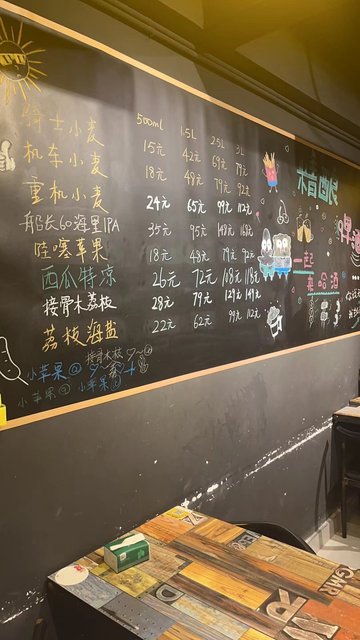 500ml 1.5L 2.5L 3L
骑士小麦 15元 42元 69元 79元
机车小麦 18元 48元 79元 92元
重机小麦 24元 65元 99元 112元
船长60海里IPA 35元 95元 148元 168元
哇噻苹果 18元 48元 79元 92元
西瓜特凉 26元 72元 118元 118元
接骨木荔枝 28元 79元 129元 149元
荔枝海盐 22元 62元 99元 112元
接骨木荔枝
小苹果
小苹果 小苹果
精酿
啤酒
一起